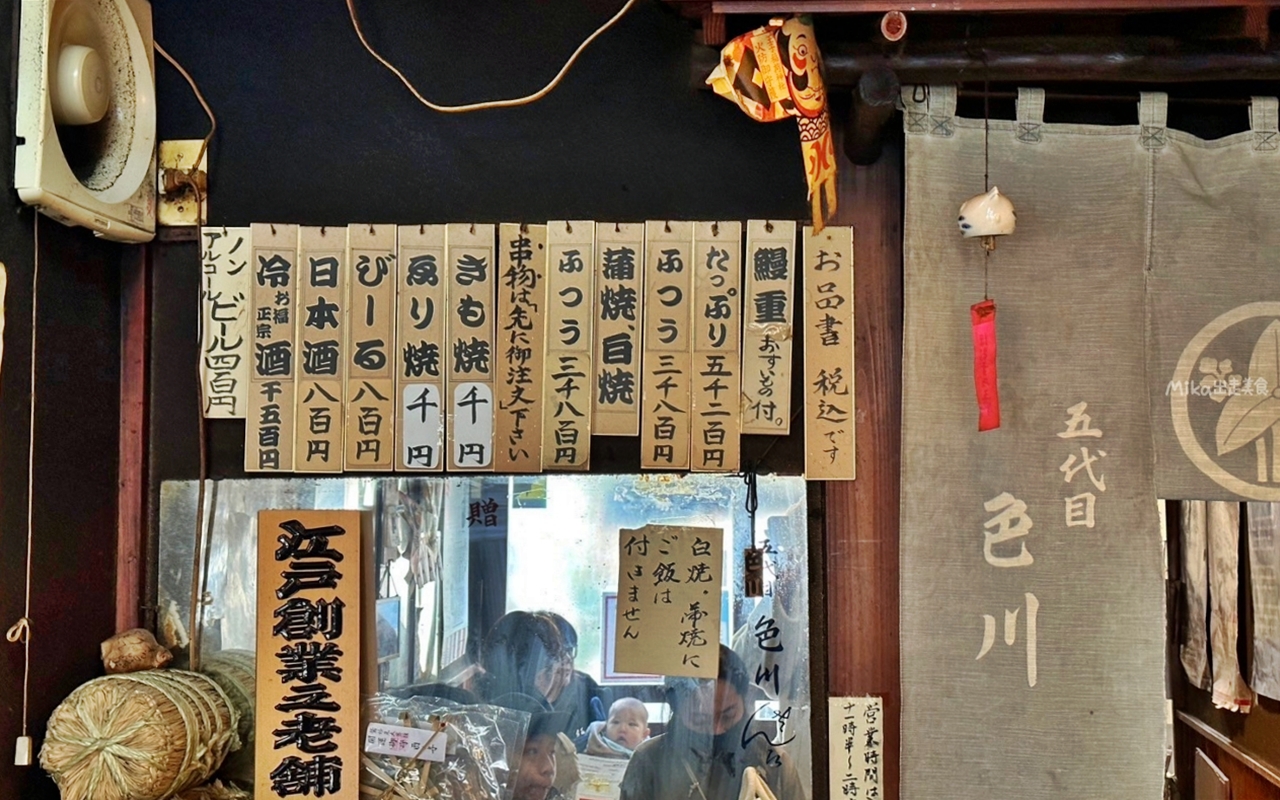 お品書 税込です
鰻重 おすいもの付。
たっぷり 五千二百円
ふつう 三千八百円
蒲焼、白焼
ふつう 三千八百円
串物は「先に御注文」下さい
きもの焼 千円
ゑり焼 千円
びーる 八百円
日本酒 八百円
冷酒 お福正宗 千五百円
ノンアルコール ビール 四百円
五代目
色川
Mika出走美食
江戸創業之老舗
贈
白焼・蒲焼に
ご飯は
付きません
五代目
色川
営業時間は
十一時半〜二時